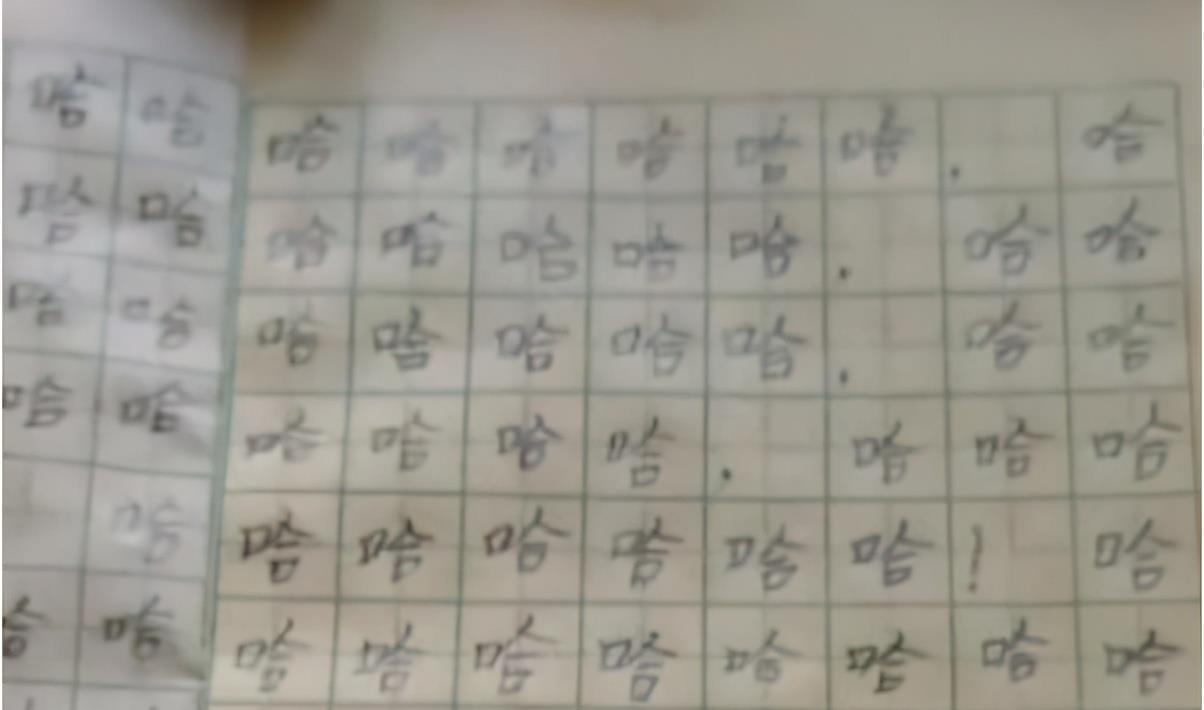 哈哈
哈哈
哈哈
哈哈
哈
哈哈
哈哈哈哈哈哈.哈
哈哈哈哈哈.哈哈
哈哈哈哈哈,哈哈
哈哈哈哈.哈哈哈
哈哈哈哈哈哈!哈
哈哈哈哈哈哈哈哈